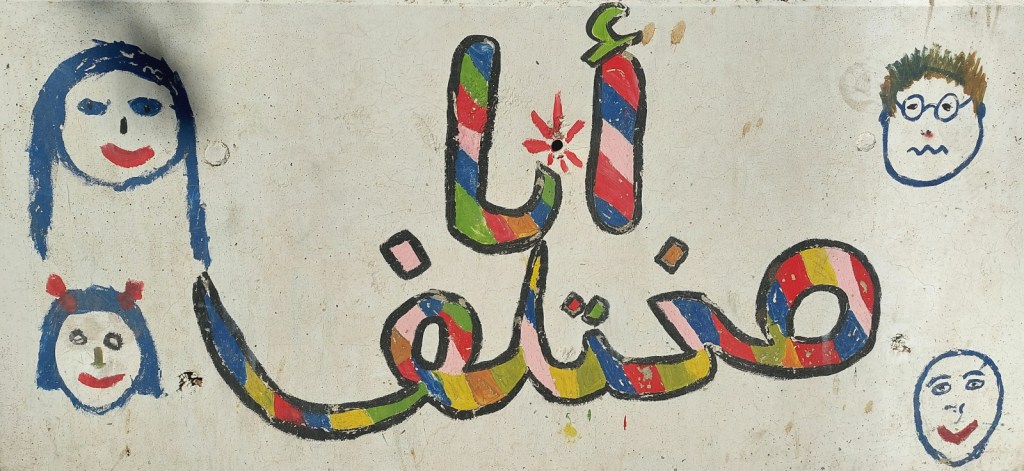 أنا
مختلف